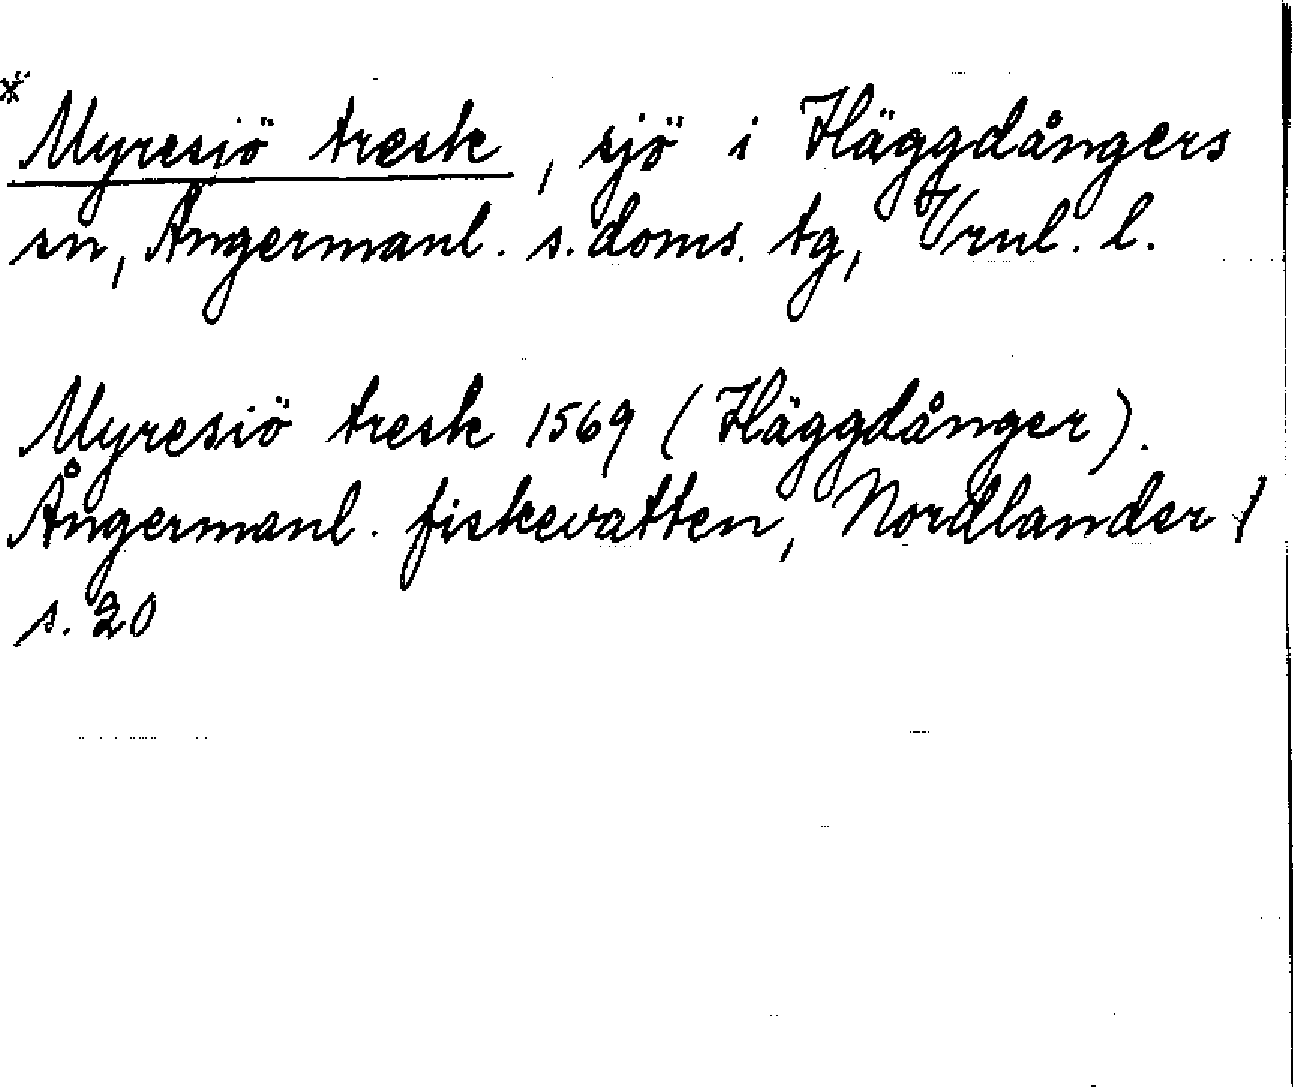 * Myresiö tresk, sjö i Häggdångers
sn, Ångermanl. s. doms. tg, Vrnl. l.
Myresiö tresk 1569 (Häggdånger).
Ångermanl. fiskevatten, Nordlander
s. 20